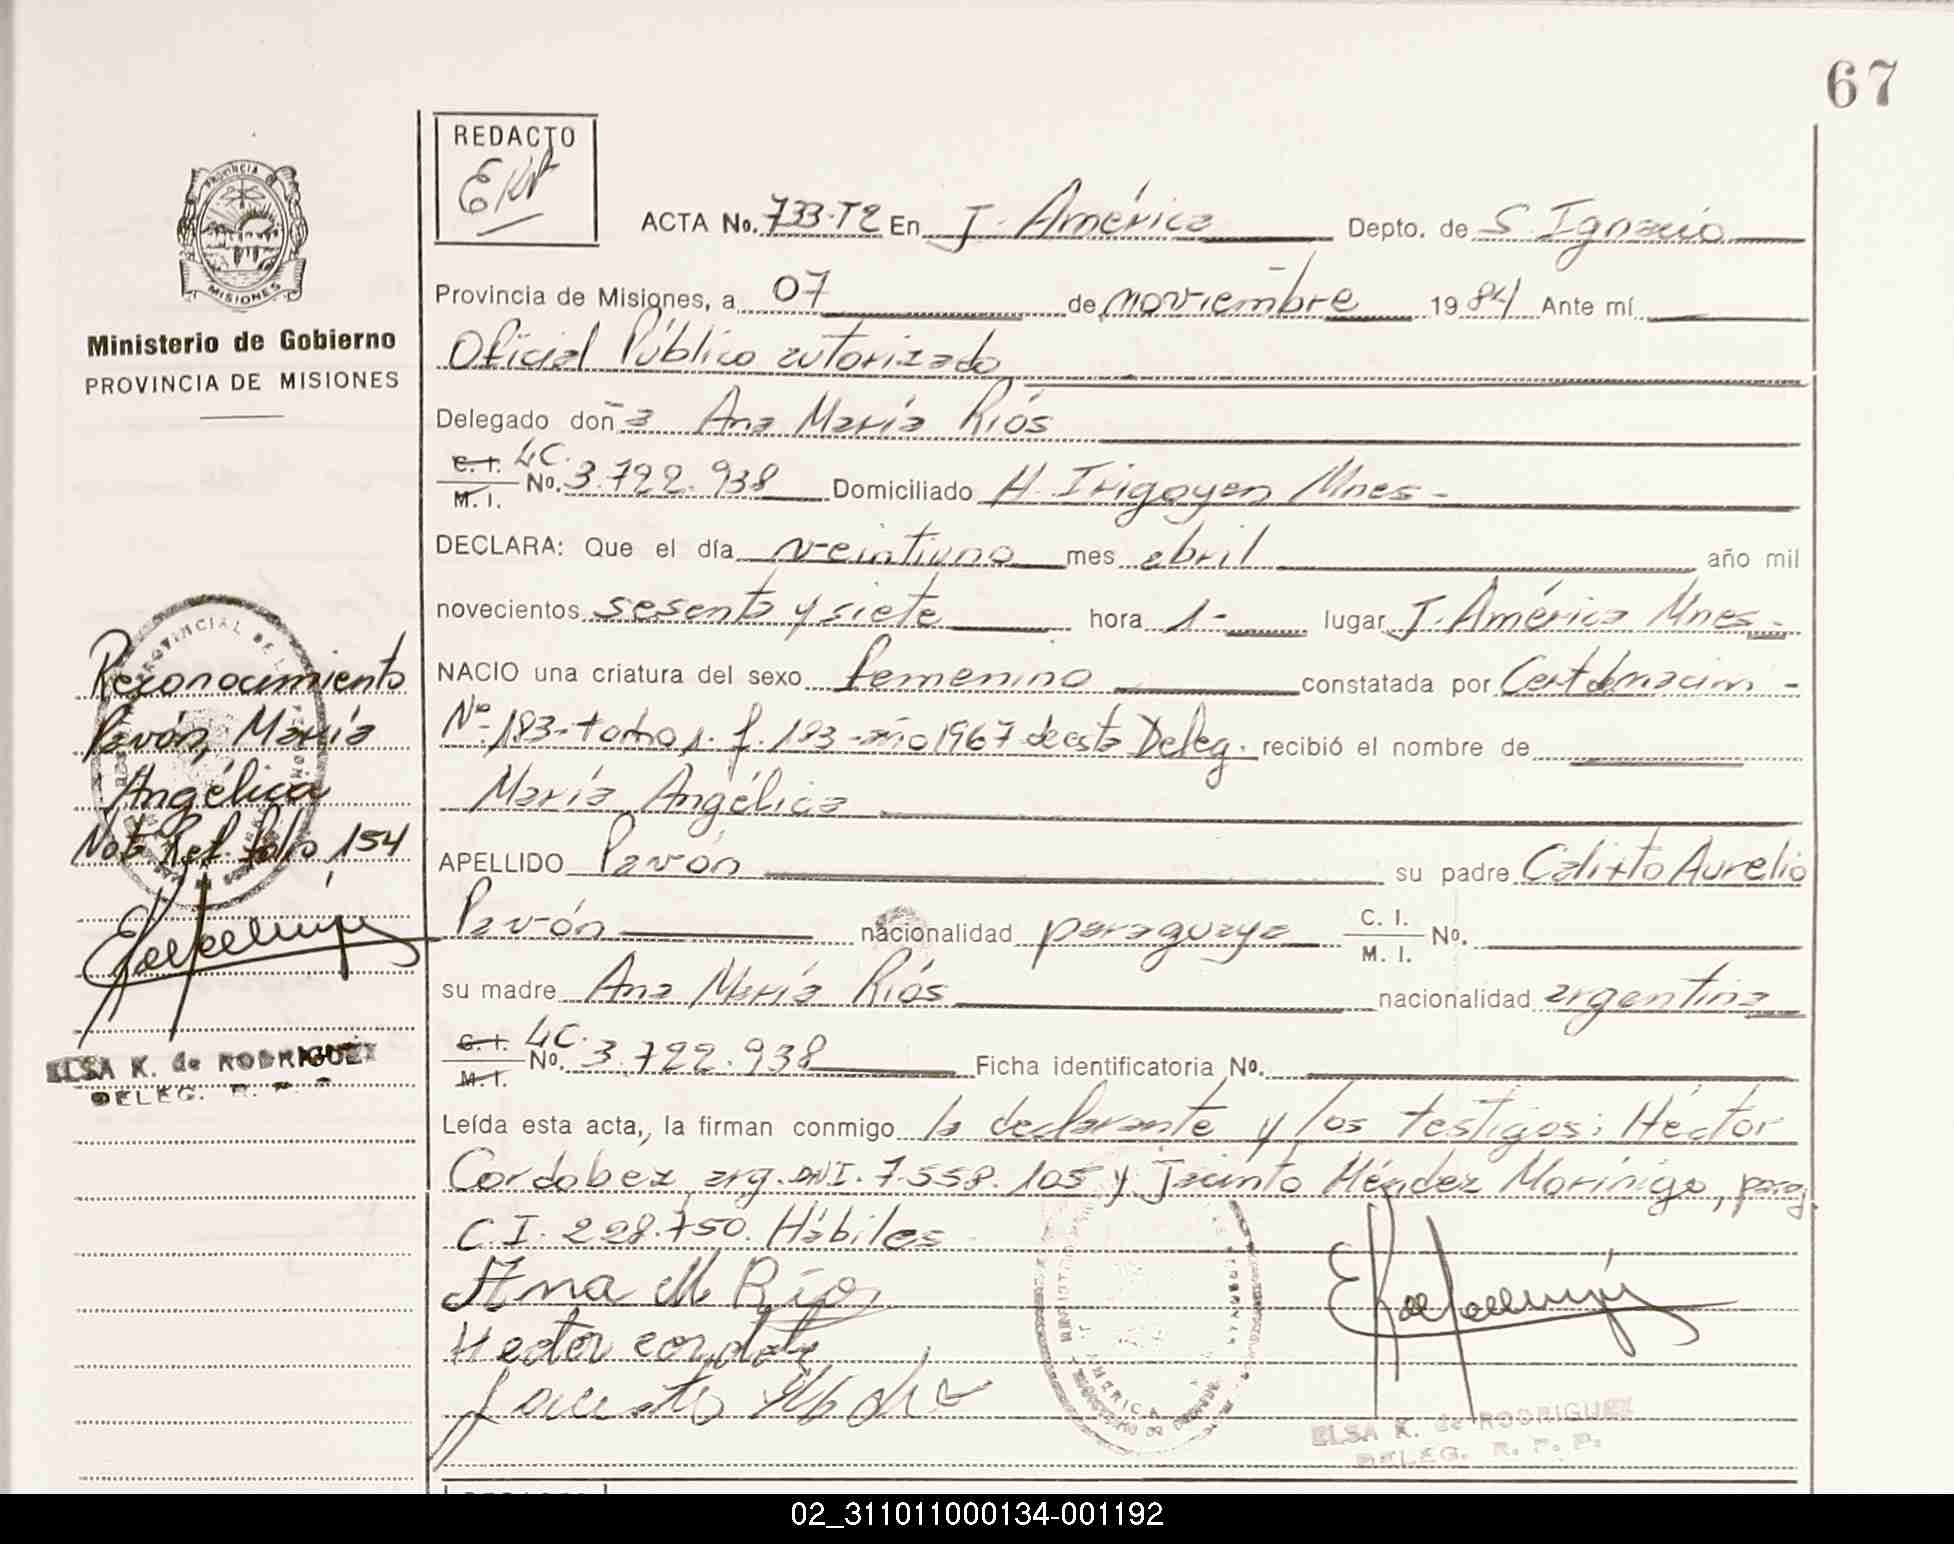 67
REDACTO
ACTA No. 733-T2 En J. América Depto. de S. Ignacio
Provincia de Misiones, a 07 de noviembre 1984 Ante mí
Oficial Público autorizado
Delegado doña Ana María Ríos
C. I. LC.
M. I. No. 3.722.938 Domiciliado H. Irigoyen Mnes-
DECLARA: Que el día veintiuno mes abril año mil
novecientos sesenta y siete hora 1- lugar J. América Mnes-
NACIO una criatura del sexo femenino constatada por Cert de nacim-
Nº 193-tomo 1. f. 193-año 1967 de esta Deleg. recibió el nombre de
María Angélica
APELLIDO Pavón su padre Calixto Aurelio
Pavón nacionalidad paraguaya C. I. M. I. No.
su madre Ana María Ríos nacionalidad argentina
C. I. LC.
M. I. No. 3.722.938 Ficha identificatoria No.
Leída esta acta, la firman conmigo la declarante y los testigos: Héctor
Cordobez, arg. DNI. 7.558.105 y Jacinto Méndez Morínigo, parag.
C.I. 228.750. Hábiles
Ana M Ríos
Hector
Jacinto
ELSA K. de RODRIGUEZ
DELEG. R. P. P.
PROVINCIA DE
MISIONES
Ministerio de Gobierno
PROVINCIA DE MISIONES
Reconocimiento
Pavón, María
Angélica
Nota Ref. folio 154
ELSA K. de RODRIGUEZ
DELEG. R. P.
02_311011000134-001192